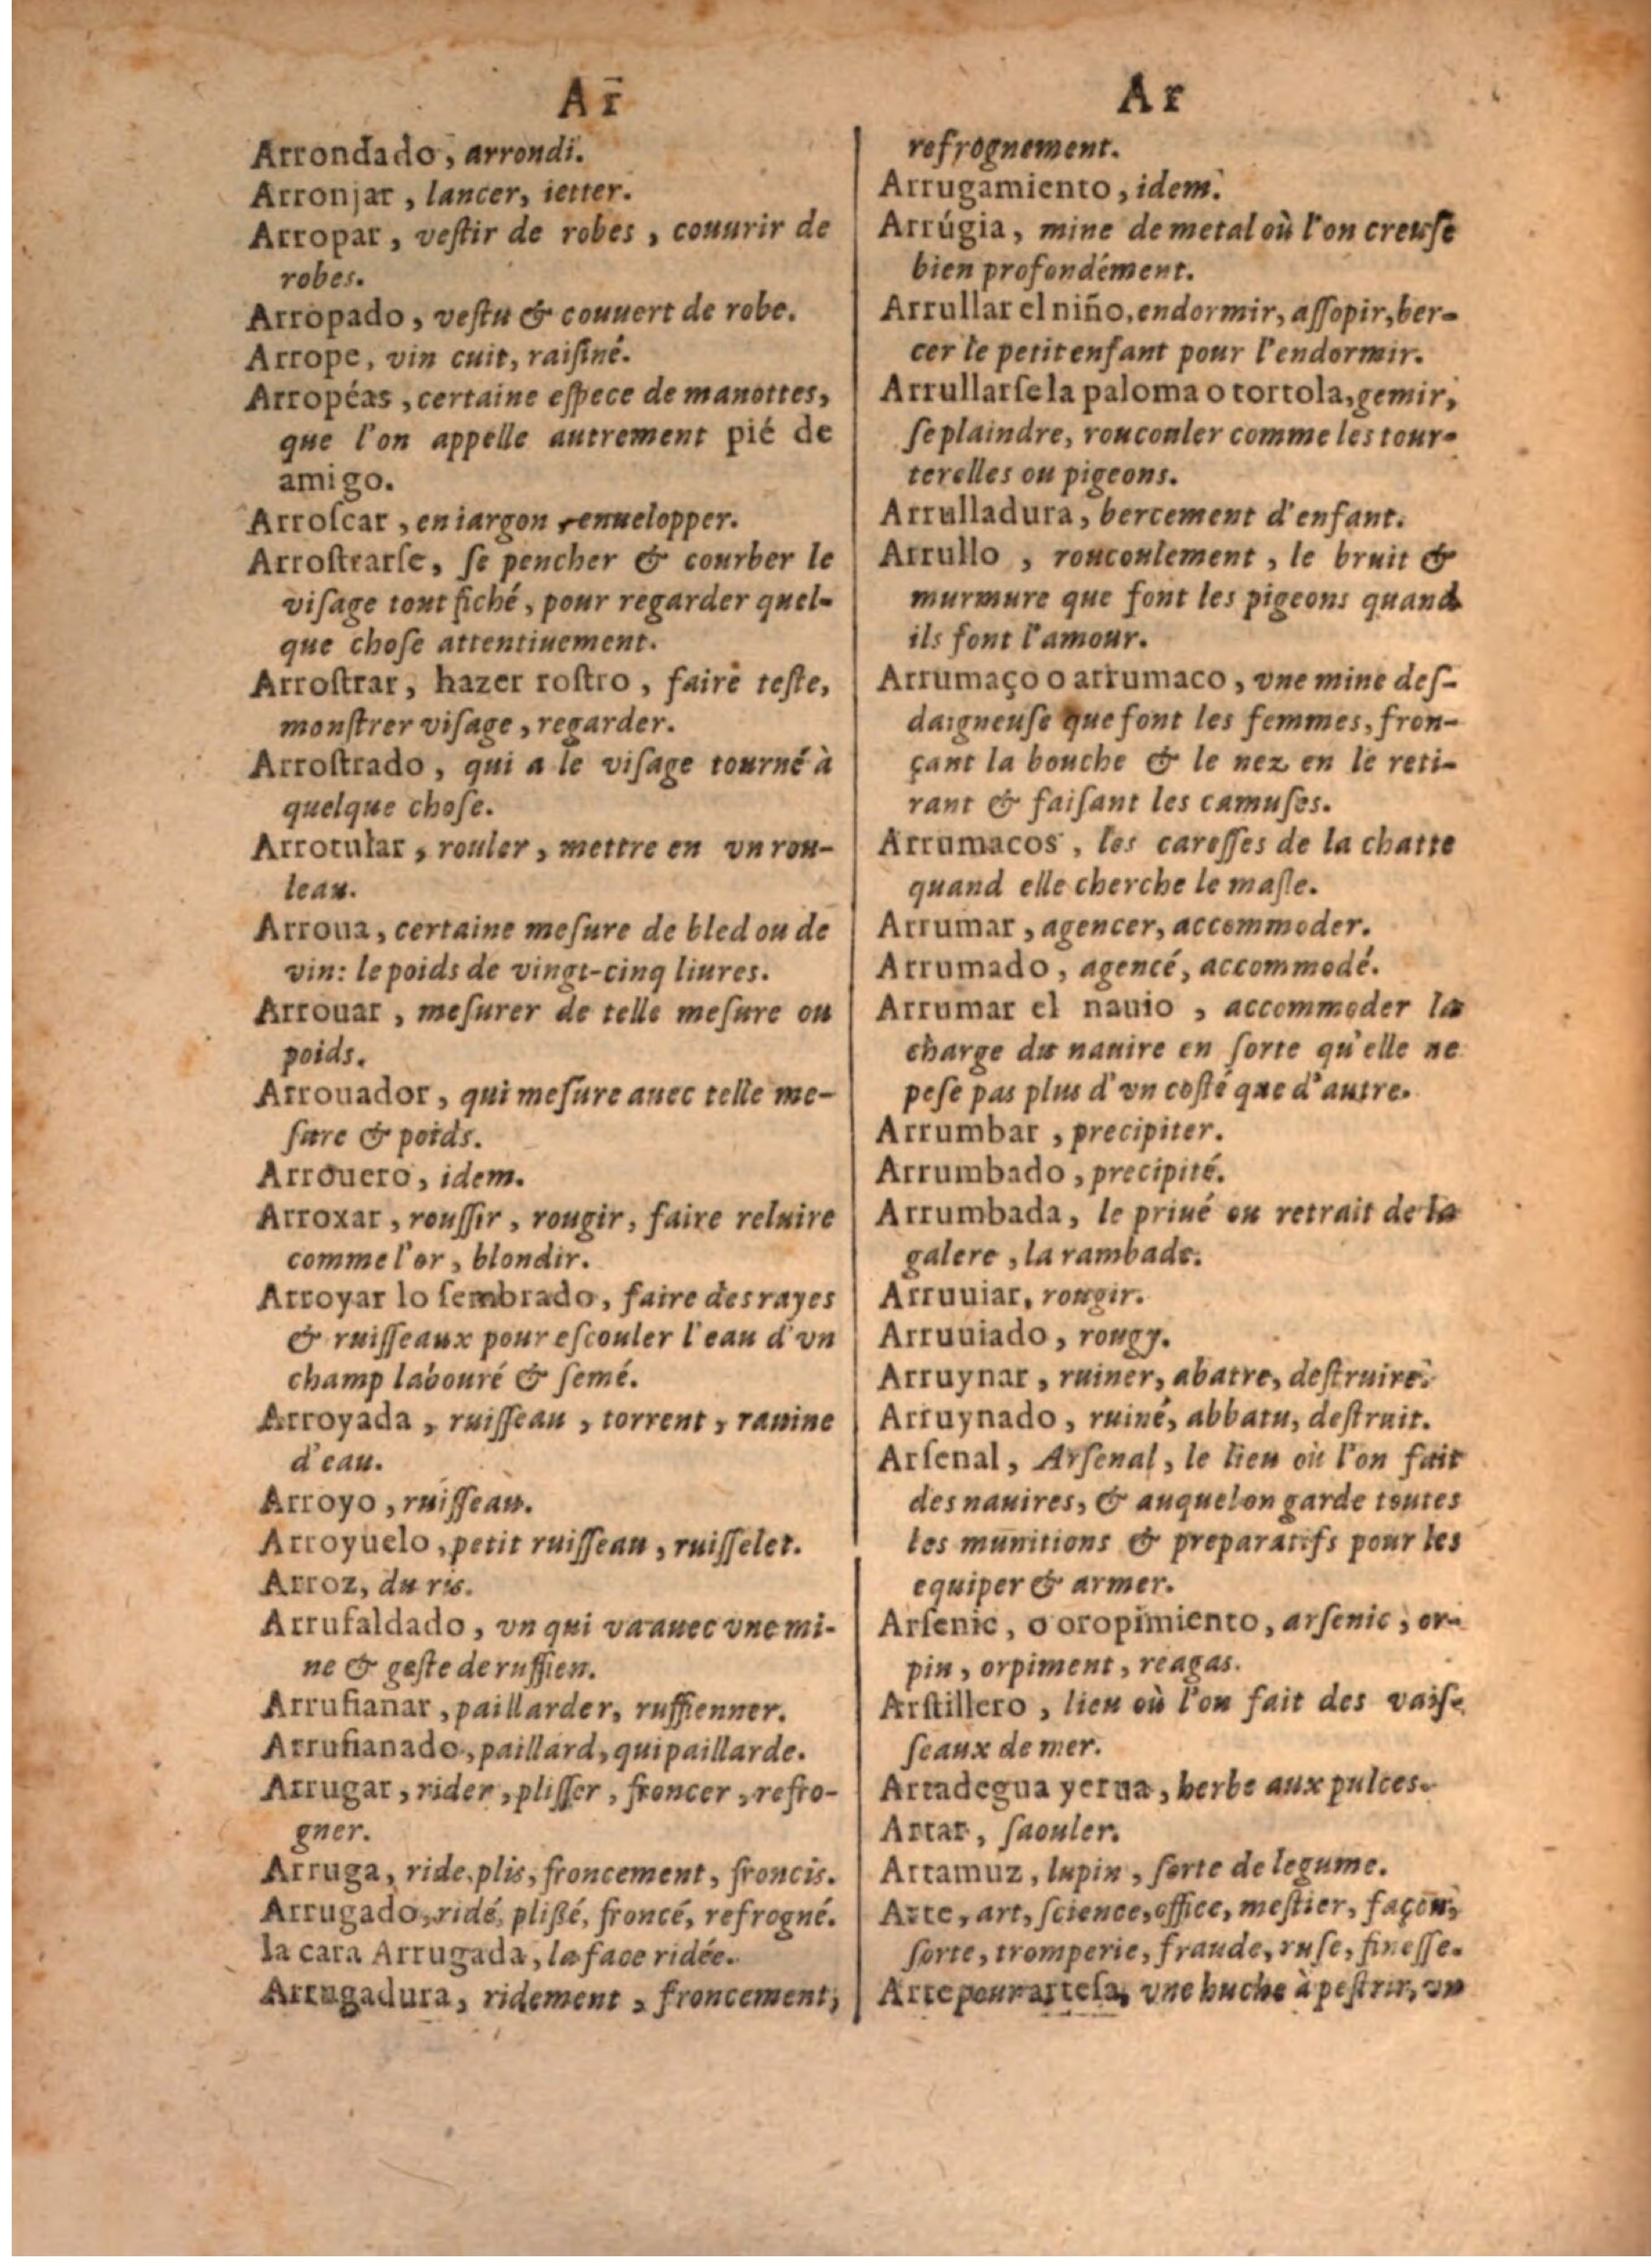 Ar
Arrondado, arrondi.
Arronjar, lancer, ietter.
Arropar, veſtir de robes, couurir de
robes.
Arropado, veſtu & couuert de robe.
Arrope, vin cuit, raiſiné.
Arropéas, certaine eſpece de manottes,
que l'on appelle autrement pié de
amigo.
Arroſcar, en iargon, enuelopper.
Arroſtrarſe, ſe pencher & courber le
viſage tout fiché, pour regarder quel-
que choſe attentiuement.
Arroſtrar, hazer roſtro, faire teſte,
monſtrer viſage, regarder.
Arroſtrado, qui a le viſage tourné à
quelque choſe.
Arrotular, rouler, mettre en vn rou-
leau.
Arroua, certaine meſure de bled ou de
vin: le poids de vingt-cinq liures.
Arrouar, meſurer de telle meſure ou
poids.
Arrouador, qui meſure auec telle me-
ſure & poids.
Arrouero, idem.
Arroxar, rouſſir, rougir, faire reluire
comme l'or, blondir.
Arroyar lo ſembrado, faire des rayes
& ruiſſeaux pour eſcouler l'eau d'vn
champ labouré & ſemé.
Arroyada, ruiſſeau, torrent, rauine
d'eau.
Arroyo, ruiſſeau.
Arroyuelo, petit ruiſſeau, ruiſſelet.
Arroz, du ris.
Arrufaldado, vn qui va auec vne mi-
ne & geſte de ruffien.
Arrufianar, paillarder, ruffienner.
Arrufianado, paillard, qui paillarde.
Arrugar, rider, pliſſer, froncer, refro-
gner.
Arruga, ride, plis, froncement, froncis.
Arrugado, ridé, plißé, froncé, refrogné.
la cara Arrugada, la face ridée.
Arrugadura, ridement, froncement,
Ar
refrognement.
Arrugamiento, idem.
Arrúgia, mine de metal où l'on creuſe
bien profondément.
Arrullar el niño, endormir, aſſopir, ber-
cer le petit enfant pour l'endormir.
Arrullarſe la paloma o tortola, gemir,
ſe plaindre, rouconler comme les tour-
terelles ou pigeons.
Arrulladura, bercement d'enfant.
Arrullo, roucoulement, le bruit &
murmure que font les pigeons quand
ils font l'amour.
Arrumaço o arrumaco, vne mine deſ-
daigneuſe que font les femmes, fron-
çant la bouche & le nez en le reti-
rant & faiſant les camuſes.
Arrumacos, les careſſes de la chatte
quand elle cherche le maſle.
Arrumar, agencer, accommoder.
Arrumado, agencé, accommodé.
Arrumar el nauio, accommoder la
charge du nauire en ſorte qu'elle ne
peſe pas plus d'vn coſté que d'autre.
Arrumbar, precipiter.
Arrumbado, precipité.
Arrumbada, le priué ou retrait de la
galere, la rambade.
Arruuiar, rougir.
Arruuiado, rougy.
Arruynar, ruiner, abatre, deſtruire.
Arruynado, ruiné, abbatu, deſtruit.
Arſenal, Arſenal, le lieu où l'on fait
des nauires, & auquel on garde toutes
les munitions & preparatifs pour les
equiper & armer.
Arſenic, o oropimiento, arſenic, or-
pin, orpiment, reagas.
Arſtillero, lieu où l'on fait des vaiſ-
ſeaux de mer.
Artadegua yerua, herbe aux pulces.
Artar, ſaouler.
Artamuz, lupin, ſorte de legume.
Arte, art, ſcience, office, meſtier, façon,
ſorte, tromperie, fraude, ruſe, fineſſe.
Arte pour arteſa, vne huche à peſtrir, vn